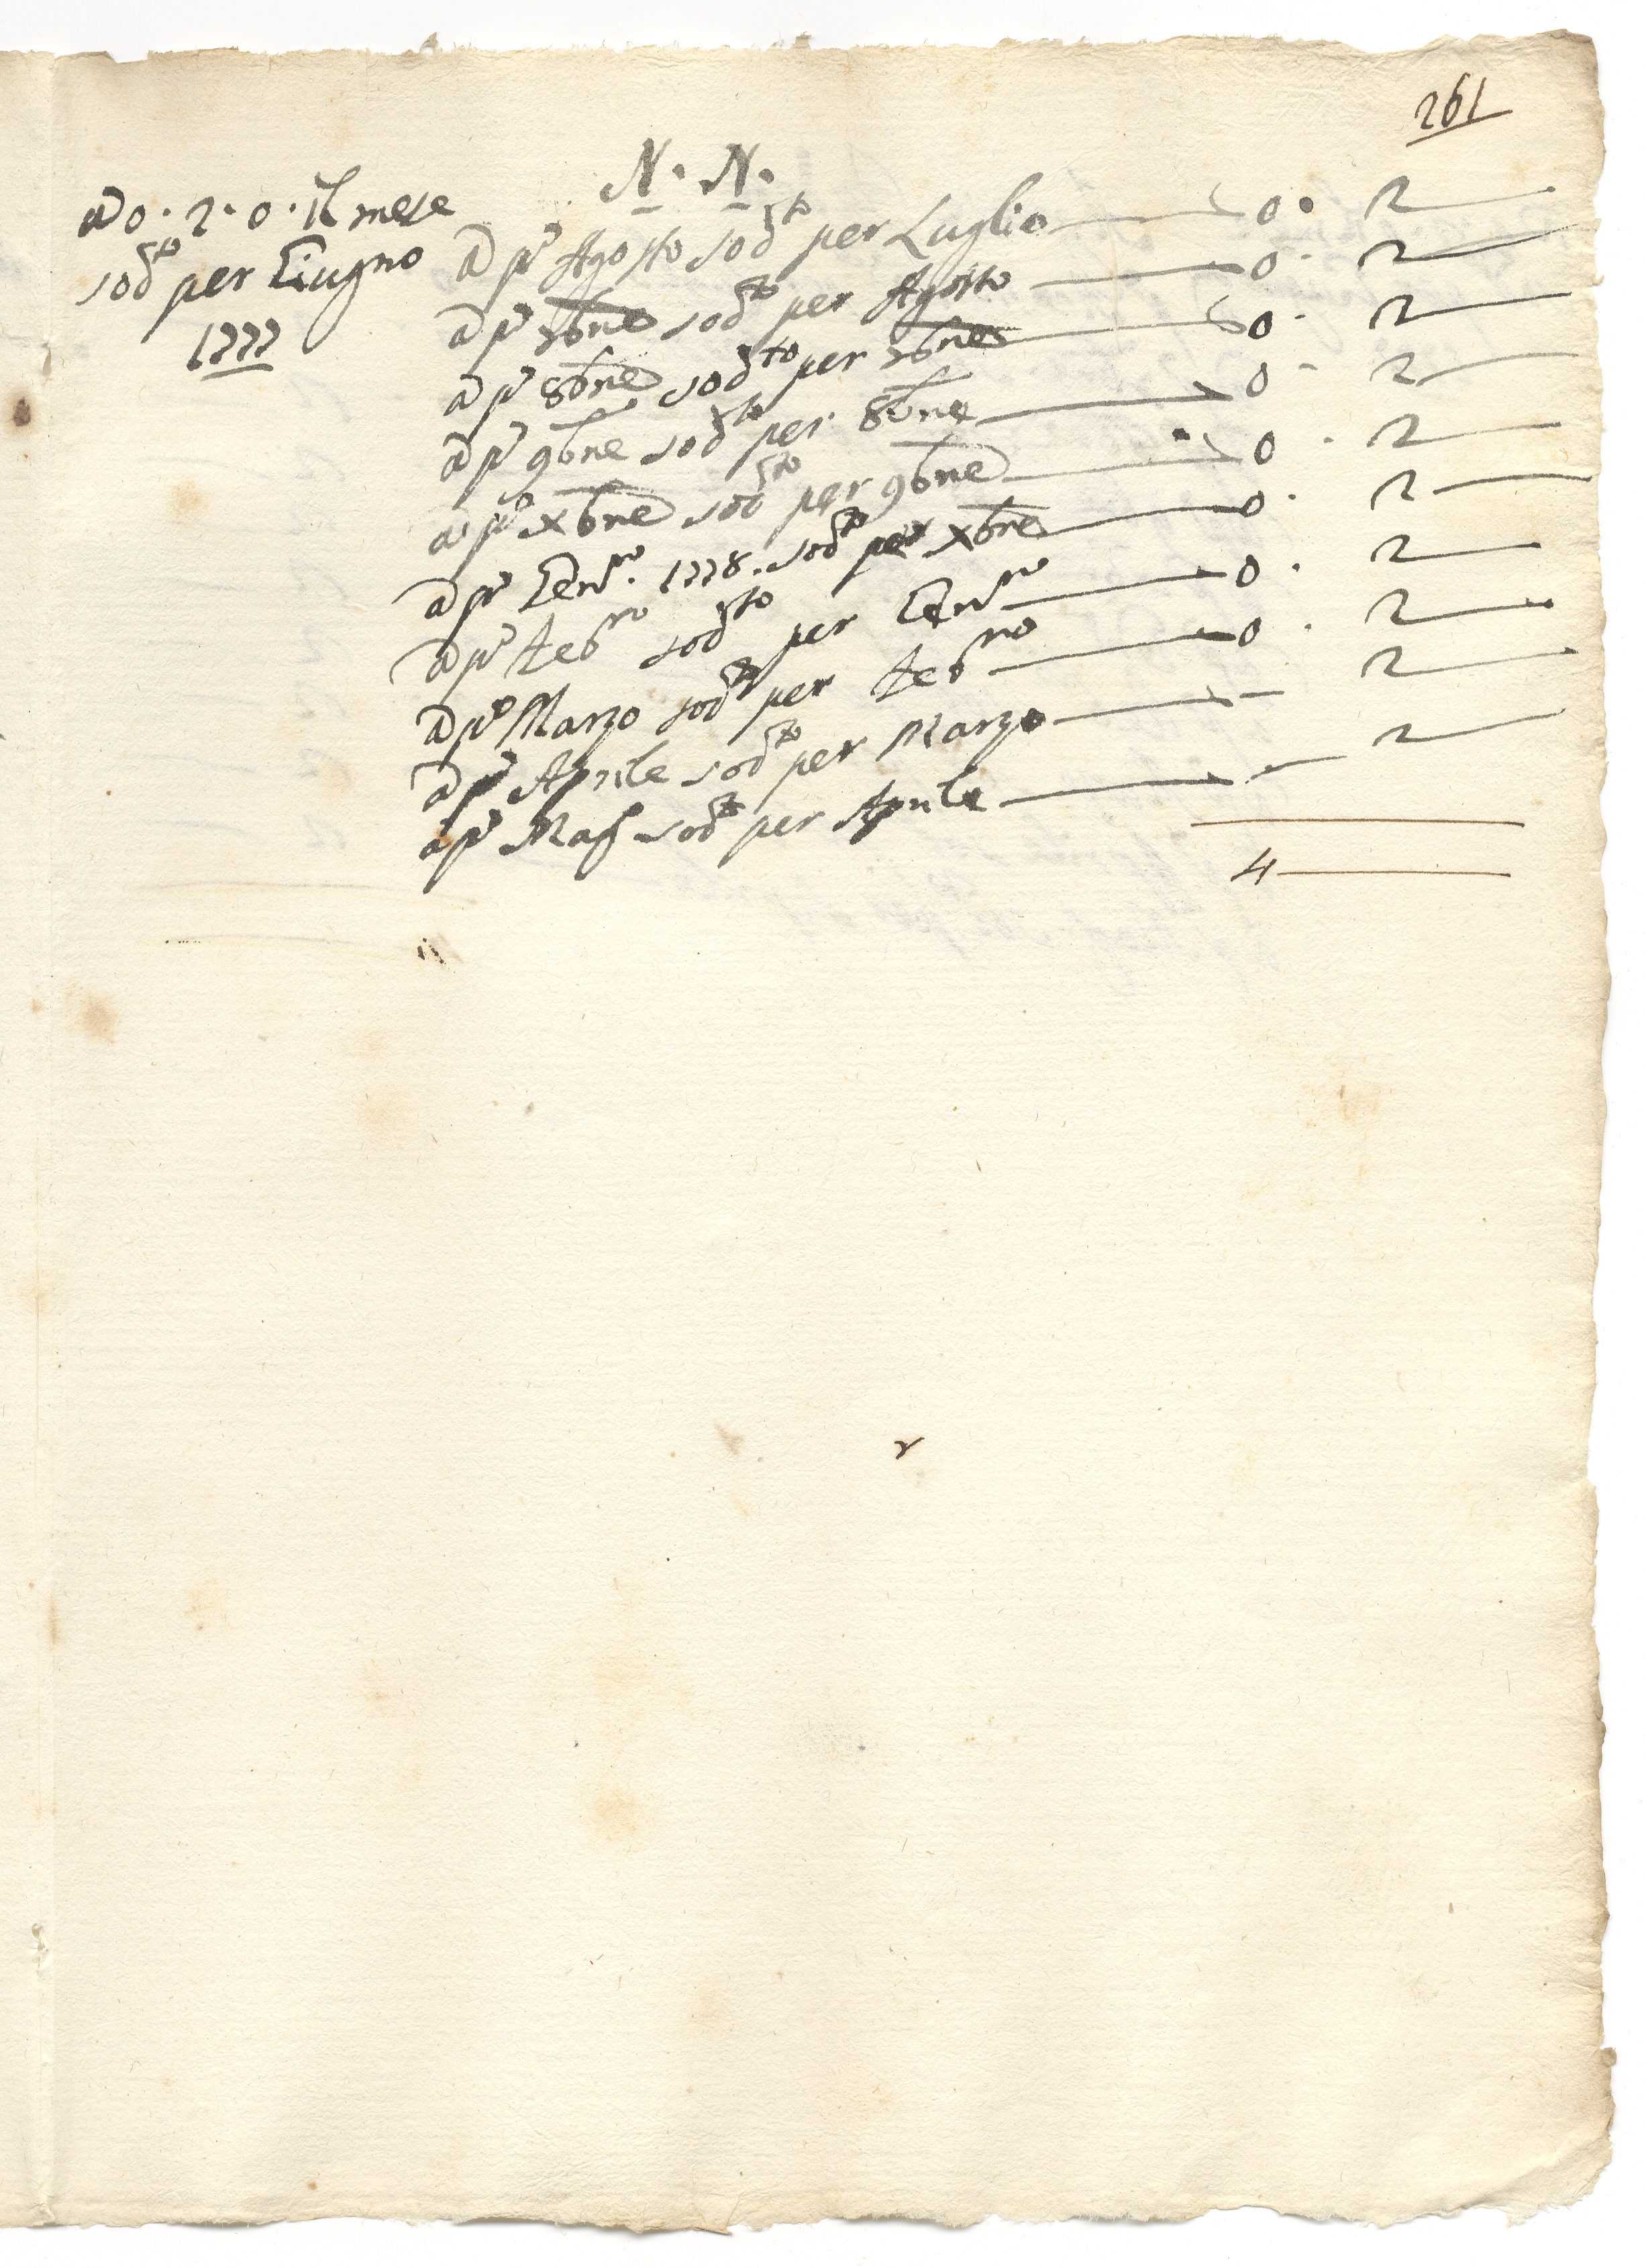 261
N. N.
a 0. 2. 0. il mese
sodto per Giugno
1777
a pº Agosto sodto per Luglio — 0. 2 —
a pº 7bre sodto per Agosto — 0. 2 —
a pº 8bre sodto per 7bre — 0. 2 —
a pº 9bre sodto per 8bre — 0. 2 —
a pº xbre sodto per 9bre — 0. 2 —
a pº Genro. 1778. sodto per xbre — 0. 2 —
a pº Febro sodto per Genro — 0. 2 —
a pº Marzo sodto per Febro — 0. 2 —
a pº Aprile sodto per Marzo — — 2 —
a pº sodto per Aprile — — 2 —
4 —